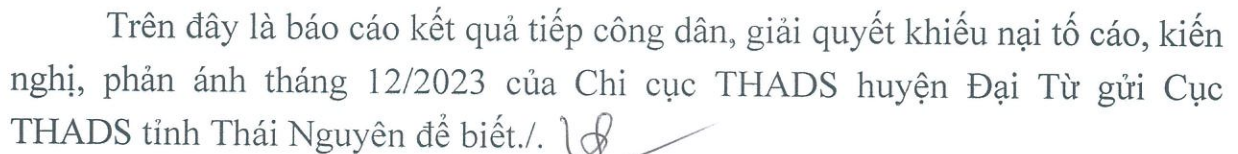 Trên đây là báo cáo kết quả tiếp công dân, giải quyết khiếu nại tố cáo, kiến
nghị, phản ánh tháng 12/2023 của Chi cục THADS huyện Đại Từ gửi Cục
THADS tỉnh Thái Nguyên để biết./.